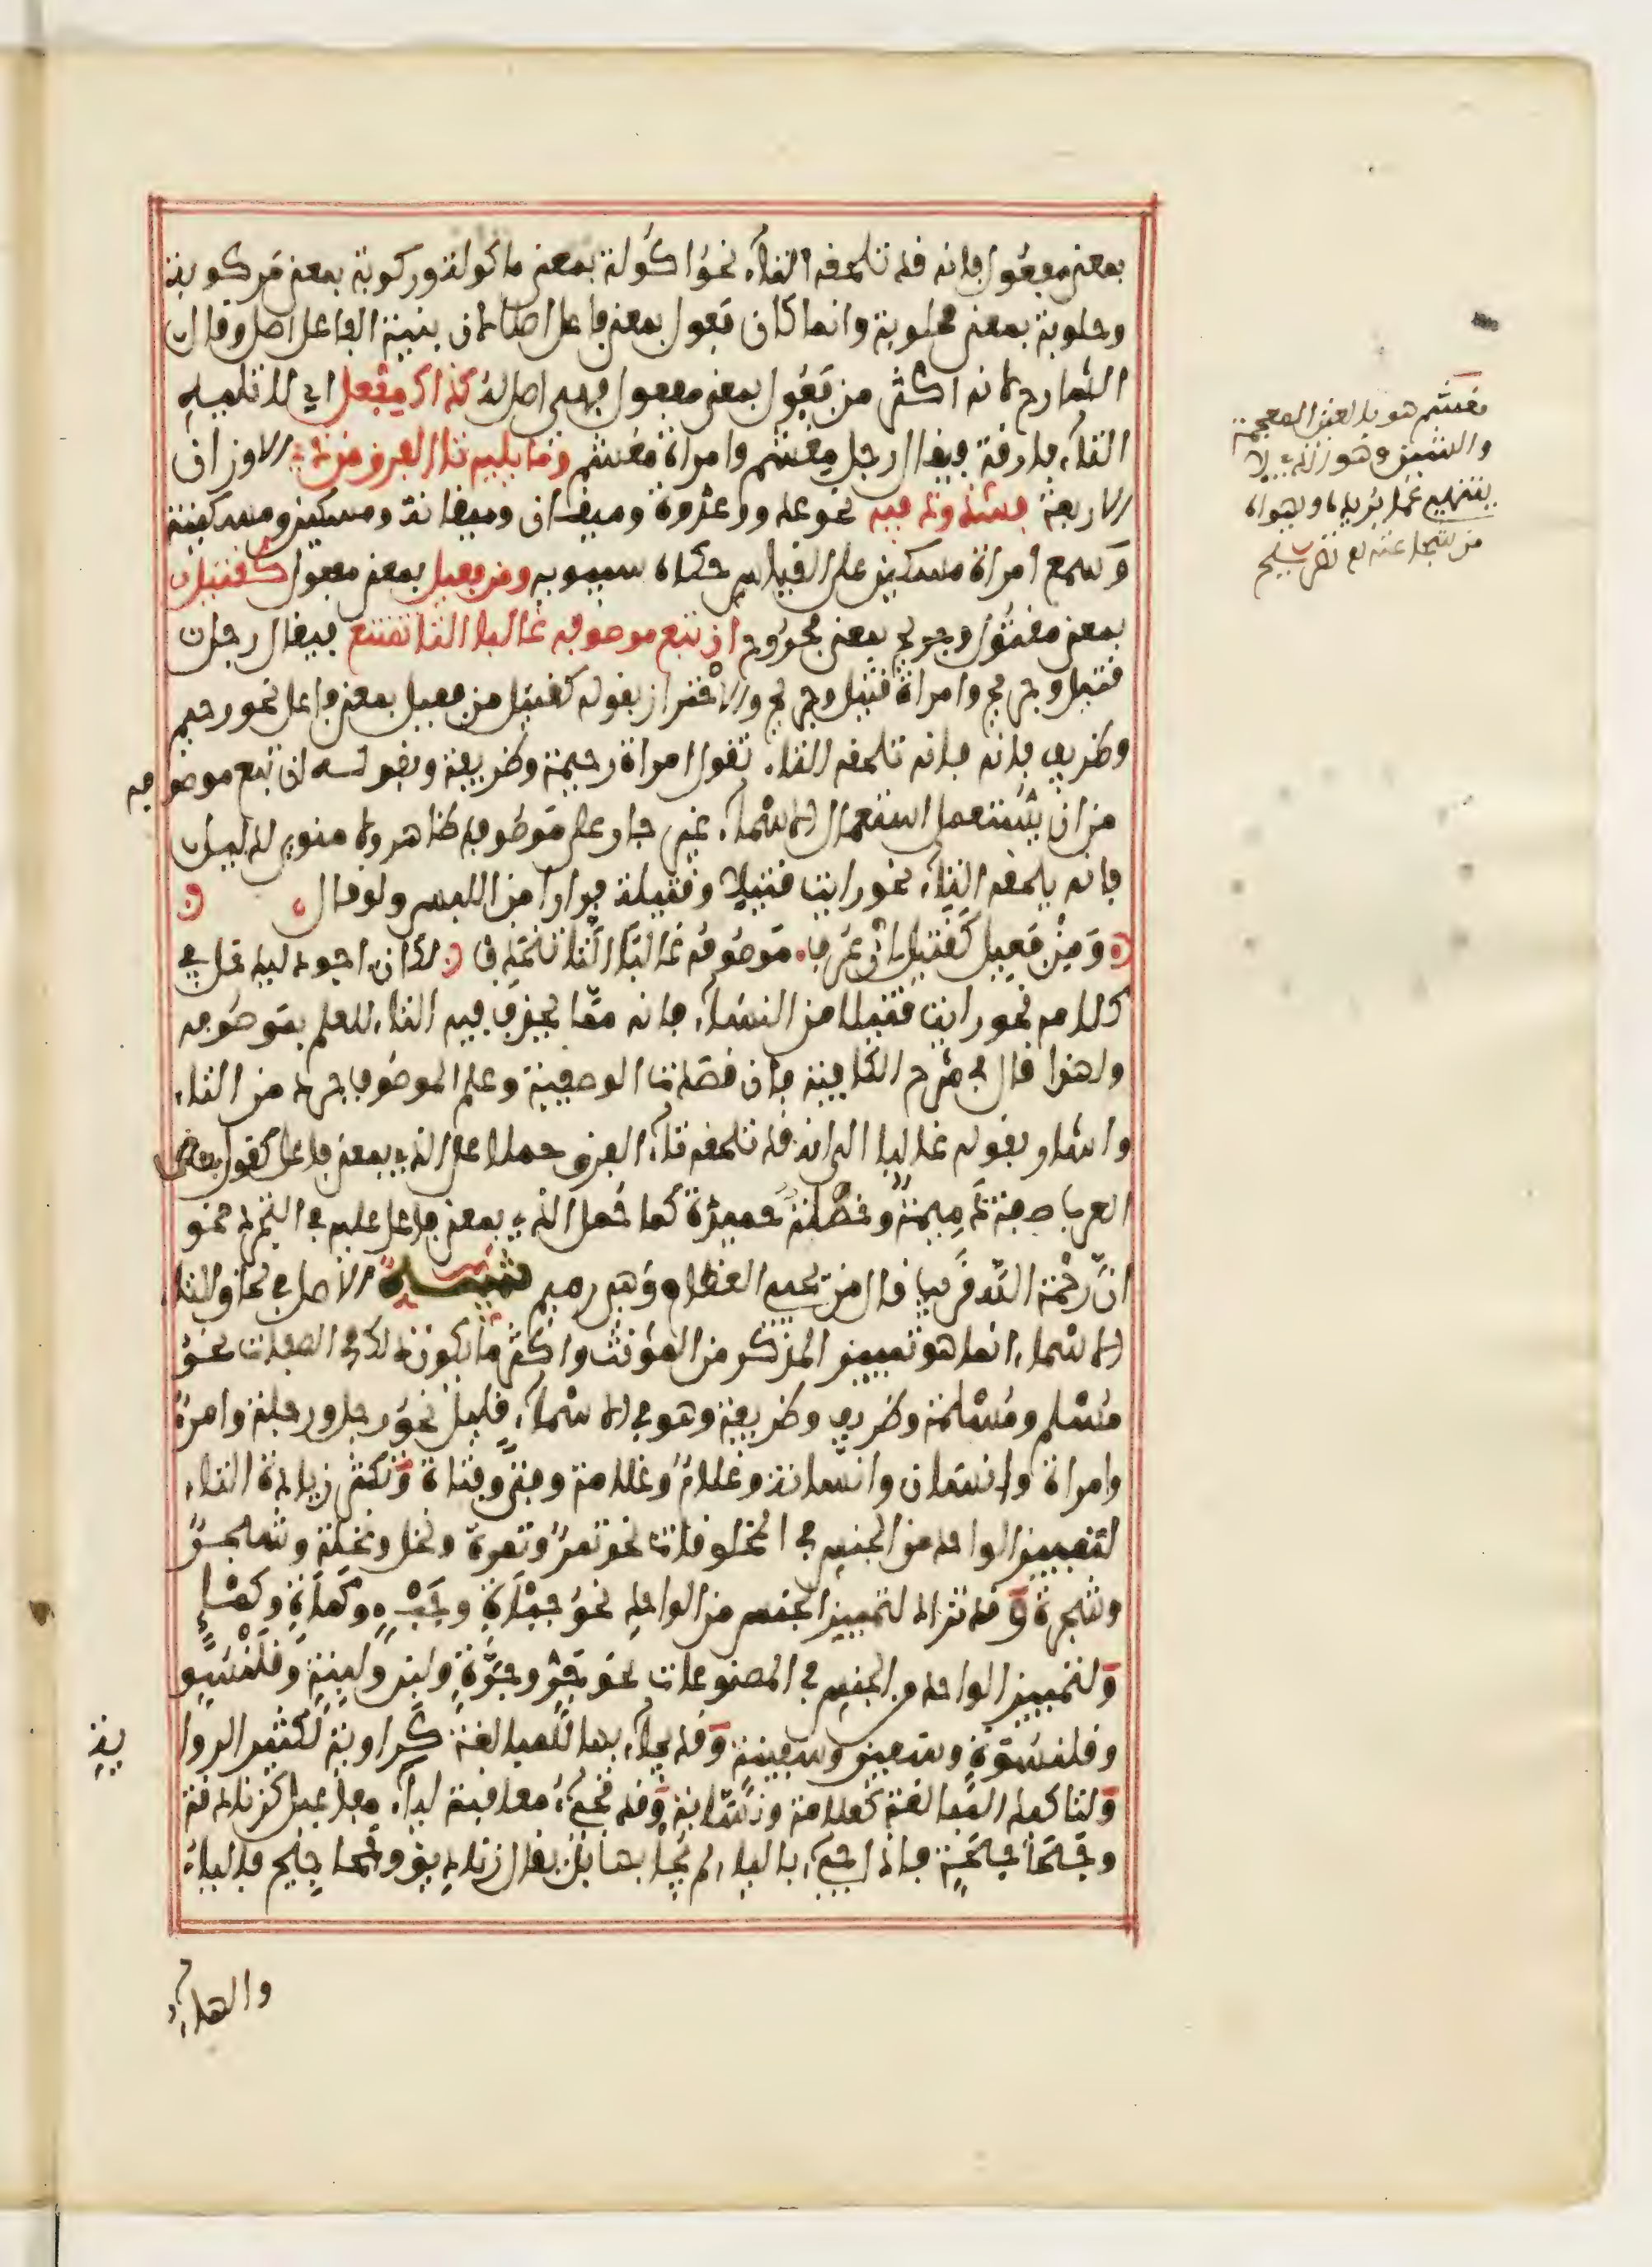 بمعنى مفعول فانه قد تلحقه التاء نحو اكولة بمعنى ماكولة وركوبة بمعنى مركوبة
وحلوبة بمعنى محلوبة وانما كان فعول بمعنى فاعل اصلا لان بنية الفاعل اصل وقال
الشارح لانه اكثر من فعول بمعنى مفعول فهو اصل له كذاك مفعل اي لا تليه
التاء فارقة فيقال رجل مغشم وامراة مغشم وما يليه تا الفرق من ذي الاوزان
الاربعة فشذوذ فيه نحو عدو وعدوة وميقان وميقانة ومسكين ومسكينة
وسمع امراة مسكين على القياس حكاه سيبويه ومن فعيل بمعنى مفعول كقتيل
بمعنى مقتول وجريح بمعنى مجروح ان تبع موصوفه غالبا التا تمتنع فيقال رجل
قتيل وجريح وامراة قتيل وجريح والاحتراز بقوله كقتيل من فعيل بمعنى فاعل نحو رحيم
وظريف فانه فانه تلحقه التاء تقول امراة رحيمة وظريفة وبقوله ان تبع موصوفه
من ان يستعمل استعمال الاسماء غير جار على موصوف ظاهر ولا منوي لدليل
فانه يلحقه التاء نحو رايت قتيلا وقتيلة فرارا من اللبس ولو قال
ومن فعيل كقتيل ان عرف موصوفه غالبا التا تنحذف لكان اجود ليدخل في
كلامه نحو رايت قتيلا من النساء فانه مما يحذف فيه التاء للعلم بموصوفه
ولهذا قال في شرح الكافية فان قصدت الوصفية وعلم الموصوف جرد من التاء
واشار بقوله غالبا الى انه قد تلحقه تاء الفرق حملا على الذي بمعنى فاعل كقول بعض
العرب صفة ذميمة وخصلة حميدة كما حمل الذي بمعنى فاعل عليه في التجرد نحو
ان رحمة الله قريب قال من يحيي العظام وهي رميم تنبيه الاصل في لحاق التاء
الاسماء انما هو تمييز المذكر من المؤنث واكثر ما يكون ذلك في الصفات نحو
مسلم ومسلمة وظريف وظريفة وهو في الاسماء قليل نحو رجل ورجلة وامرئ
وامراة وانسان وانسانة وغلام وغلامة وفتى وفتاة وتكثر زيادة التاء
لتمييز الواحد من الجنس في المخلوقات نحو تمر وتمرة ونخل ونخلة وشجر
وشجرة وقد تزاد لتمييز الجنس من الواحد نحو جباة وجبء وكماة وكمء
ولتمييز الواحد من الجنس في المصنوعات نحو جر وجرة ولبن ولبنة وقلنسو
وقلنسوة وسفين وسفينة وقد يجاء بها للمبالغة كراوية لكثير الرواية
ولتاكيد المبالغة كعلامة ونسابة وقد تجيء معاقبة لياء مفاعيل كزنادقة
وجحاجحة فاذا جيء بالياء لم يجا بها بل يقال زناديق وجحاجيح فالياء
والهاء
مغشم هو بالغين المعجمة
والشين وهو الذي لا
ينتهي عما يريده ويهواه
من شجاعته